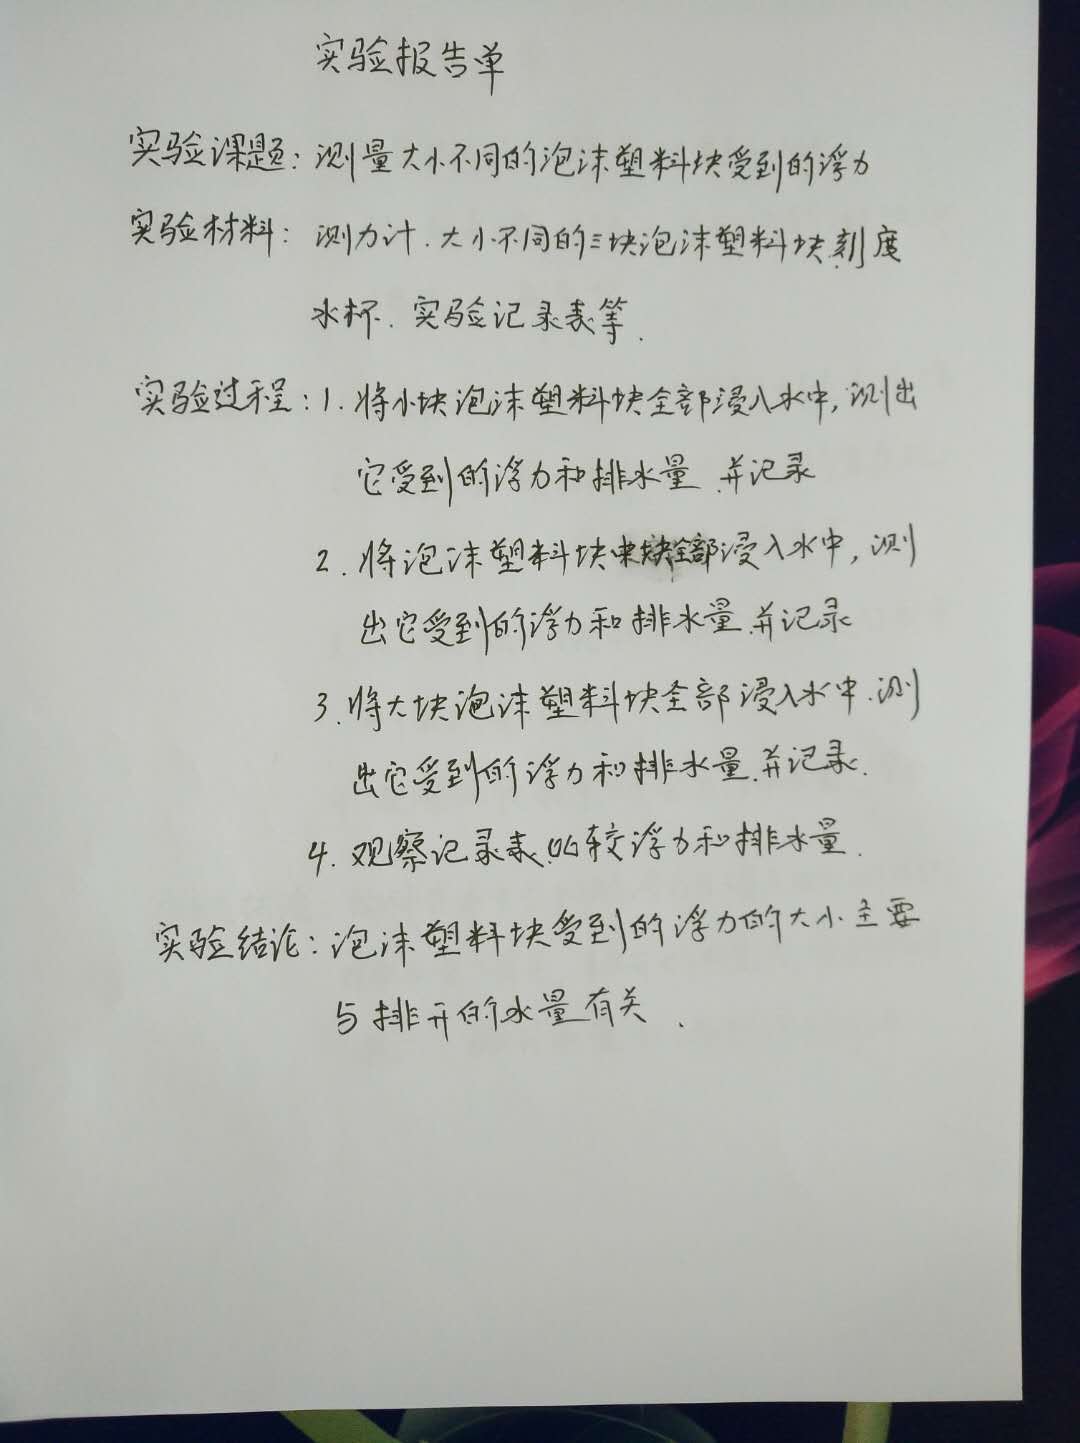 实验报告单
实验课题：测量大小不同的泡沫塑料块受到的浮力
实验材料：测力计、大小不同的三块泡沫塑料块、刻度
水杯、实验记录表等.
实验过程：1.将小块泡沫塑料块全部浸入水中,测出
它受到的浮力和排水量,并记录
2.将泡沫塑料块中块全部浸入水中,测
出它受到的浮力和排水量,并记录
3.将大块泡沫塑料块全部浸入水中,测
出它受到的浮力和排水量,并记录.
4.观察记录表,比较浮力和排水量.
实验结论：泡沫塑料块受到的浮力的大小主要
与排开的水量有关.